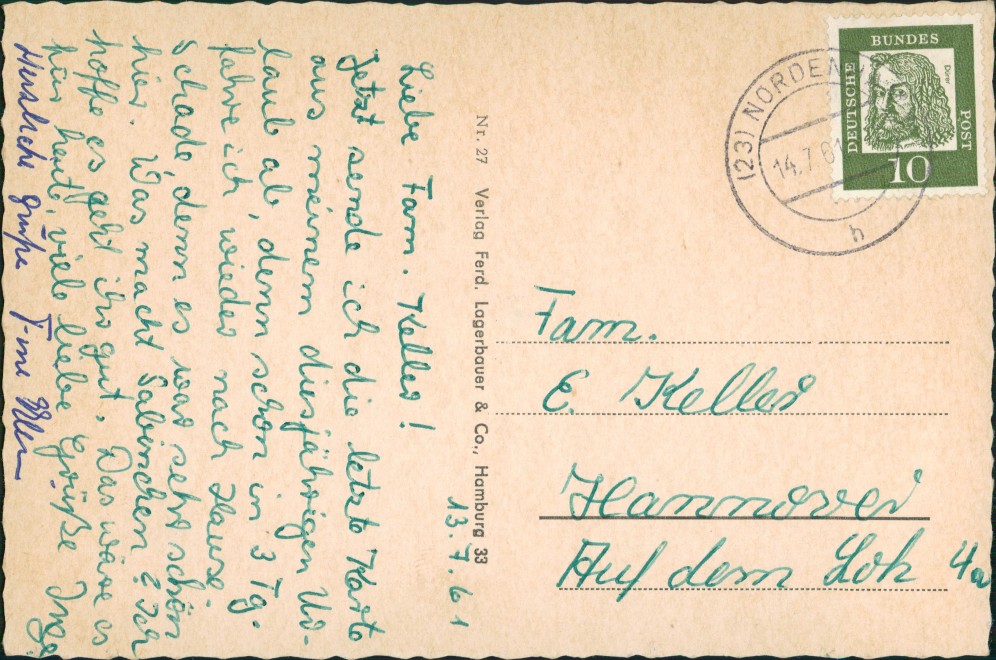 13.7.61
Liebe Fam. Keller!
Jetzt sende ich die letzte Karte
aus meinem diesjährigen Ur-
laub ab, denn schon in 3 Tg.
fahre ich wieder nach Hause.
Schade, denn es war sehr schön
hier. Was macht Sabinchen? Ich
hoffe es geht ihr gut. Das wäre es
für heute, viele liebe Grüße Inge
Herzliche Grüße
Nr. 27 Verlag Ferd. Lagerbauer & Co., Hamburg 33
DEUTSCHE
BUNDES
POST
Dürer
10
(23) NORDEN
14.7.61
h
Fam.
E. Keller
Hannover
Auf dem Loh 4a